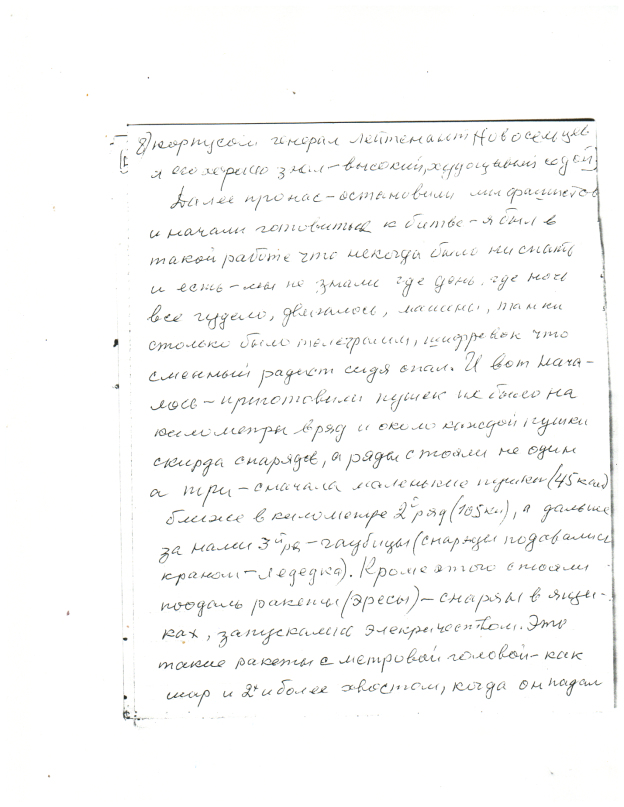 8) корпусом генерал лейтенант Новосельцев
я его хорошо знал – высокий, худощавый седой)
Далее про нас – остановили мы фашистов
и начали готовиться к битве – я был в
такой работе что некогда было ни спать
и есть – мы не знали где день, где ночь
все гудело, двигалось, машины, танки
столько было телеграмм, шифровок что
сменный радист сидя спал. И вот нача-
лось – приготовили пушек их было на
километры в ряд и около каждой пушки
скирда снарядов, а ряды стояли не один
а три – сначала маленькие пушки (45 кал)
ближе в километре 2й ряд (105 кл), а дальше
за нами 3й ряд – гаубицы (снаряды подавались
краном – лебедка). Кроме этого стояли
поодаль ракеты (эресы) – снаряды в ящи-
ках, запускались электричеством. Это
такие ракеты с метровой головой – как
шар и 2м и более хвостом, когда он падал